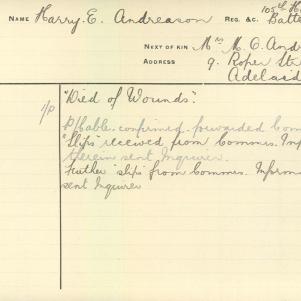 NAME Harry. E. Andreason REG. &C. 105th H
Batte
NEXT OF KIN Mrs M. O. And
ADDRESS 9. Roper St
Adelaid
1/P "Died of Wounds".
P/Cable. confirmed. forwarded Com
"Slips" received from Commrs. Inf
therein sent Inquirer.
Further "slips from Commrs. Informa
sent Inquirer